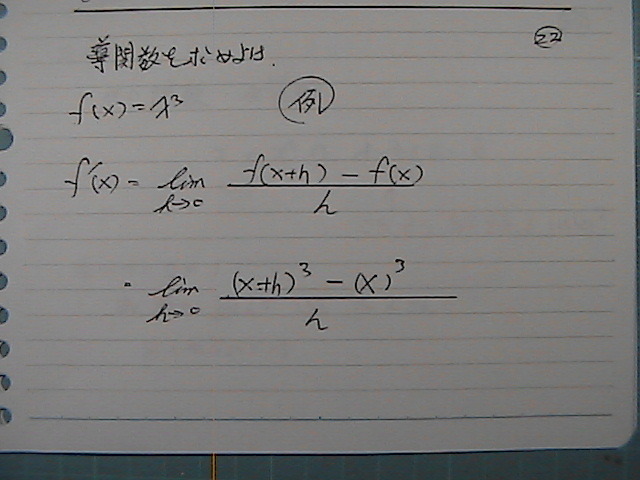 ㉒
導関数を求めよ。
f(x) = x³ 例
f'(x) = lim h→0 f(x+h) − f(x) / h
= lim h→0 (x+h)³ − (x)³ / h